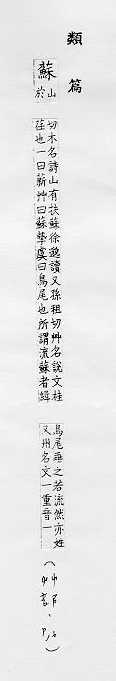 類篇
蘇
山於
切木名詩山有扶蘇徐邈讀又孫租切艸名說文桂
荏也一曰薪艸曰蘇摯虞曰鳥尾也所謂流蘇者緝
鳥尾垂之若流然亦姓
又州名文一重音一
(艸部、